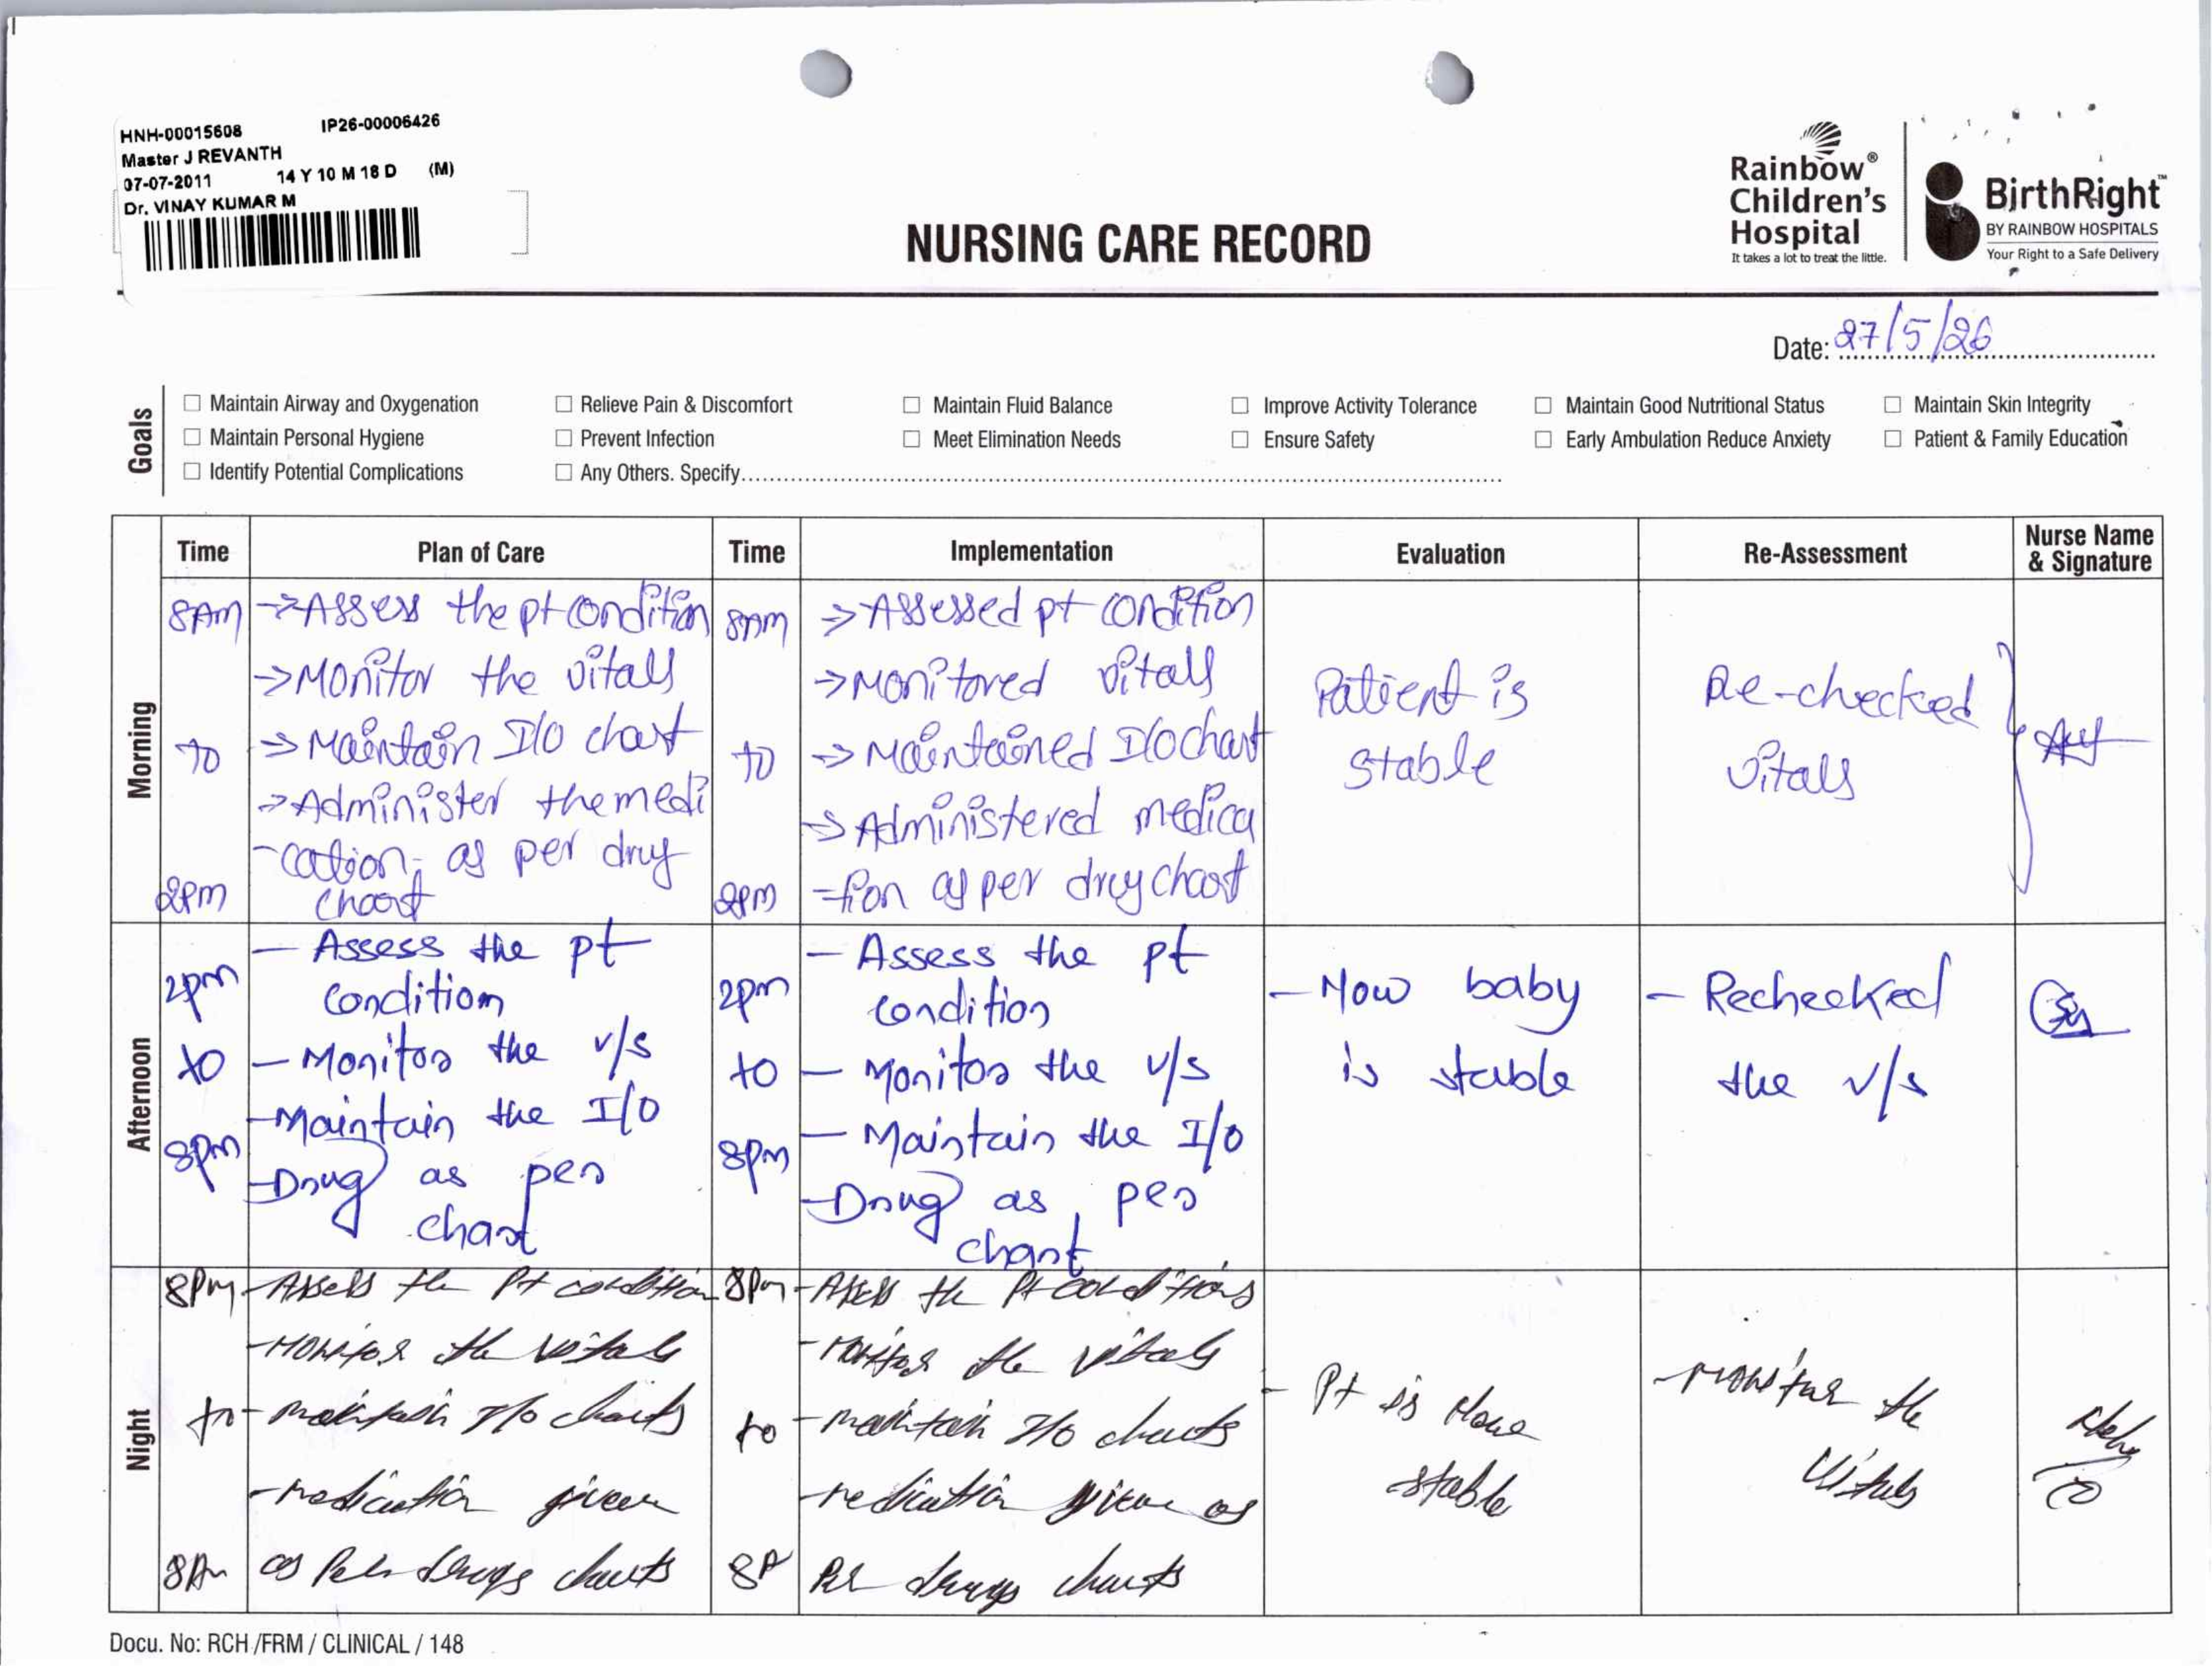 HNH-00015608 IP26-00006426
Master J REVANTH
07-07-2011 14 Y 10 M 18 D (M)
Dr. VINAY KUMAR M
NURSING CARE RECORD
Rainbow®
Children's
Hospital
It takes a lot to treat the little.
BirthRight™
BY RAINBOW HOSPITALS
Your Right to a Safe Delivery
Date: 27/5/26
Goals
☐ Maintain Airway and Oxygenation ☐ Relieve Pain & Discomfort ☐ Maintain Fluid Balance ☐ Improve Activity Tolerance ☐ Maintain Good Nutritional Status ☐ Maintain Skin Integrity
☐ Maintain Personal Hygiene ☐ Prevent Infection ☐ Meet Elimination Needs ☐ Ensure Safety ☐ Early Ambulation Reduce Anxiety ☐ Patient & Family Education
☐ Identify Potential Complications ☐ Any Others. Specify
Time Plan of Care Time Implementation Evaluation Re-Assessment Nurse Name & Signature
Morning
8AM
to
2pm
→ Assess the pt condition
→ Monitor the vitals
→ Maintain I/O chart
→ Administer the medi
-cation, as per drug
chart
8AM
to
2pm
→ Assessed pt condition
→ Monitored vitals
→ Maintained I/O chart
→ Administered medica
-tion as per drug chart
Patient is
stable
Re-checked
vitals
Afternoon
2pm
to
8pm
- Assess the pt
condition
- Monitor the v/s
- Maintain the I/O
- Drug as per
chart
2pm
to
8pm
- Assess the pt
condition
- Monitor the v/s
- Maintain the I/O
- Drug as per
chart
- Now baby
is stable
- Rechecked
the v/s
Night
8pm
to
8Am
- Assess the Pt condition
- Monitor the vitals
- maintain I/O charts
- medication given
as Per drugs charts
8pm
to
8A
- Assess the Pt conditions
- monitor the vitals
- maintain I/O charts
- medication given as
Per drugs charts
- Pt is
stable
- monitor the
vitals
Docu. No: RCH /FRM / CLINICAL / 148